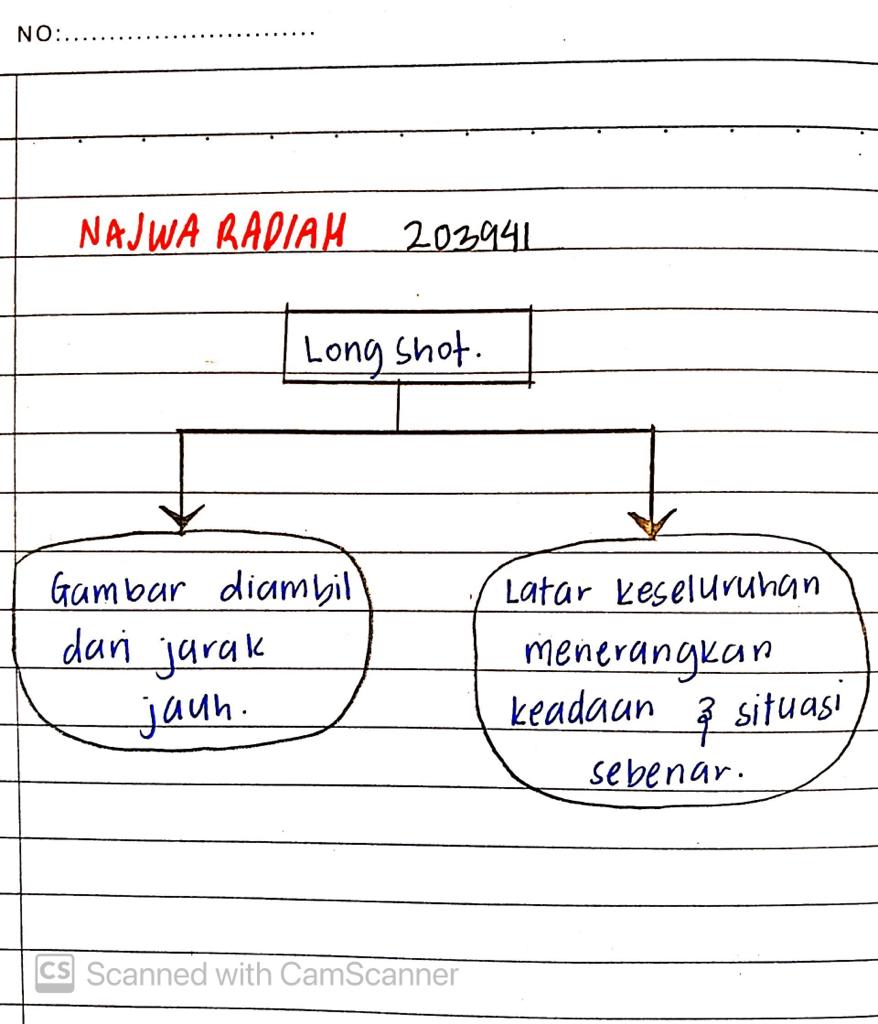 NO:............................
NAJWA RADIAH 203941
Long shot.
Gambar diambil
dari jarak
jauh.
Latar keseluruhan
menerangkan
keadaan & situasi
sebenar.
CS Scanned with CamScanner